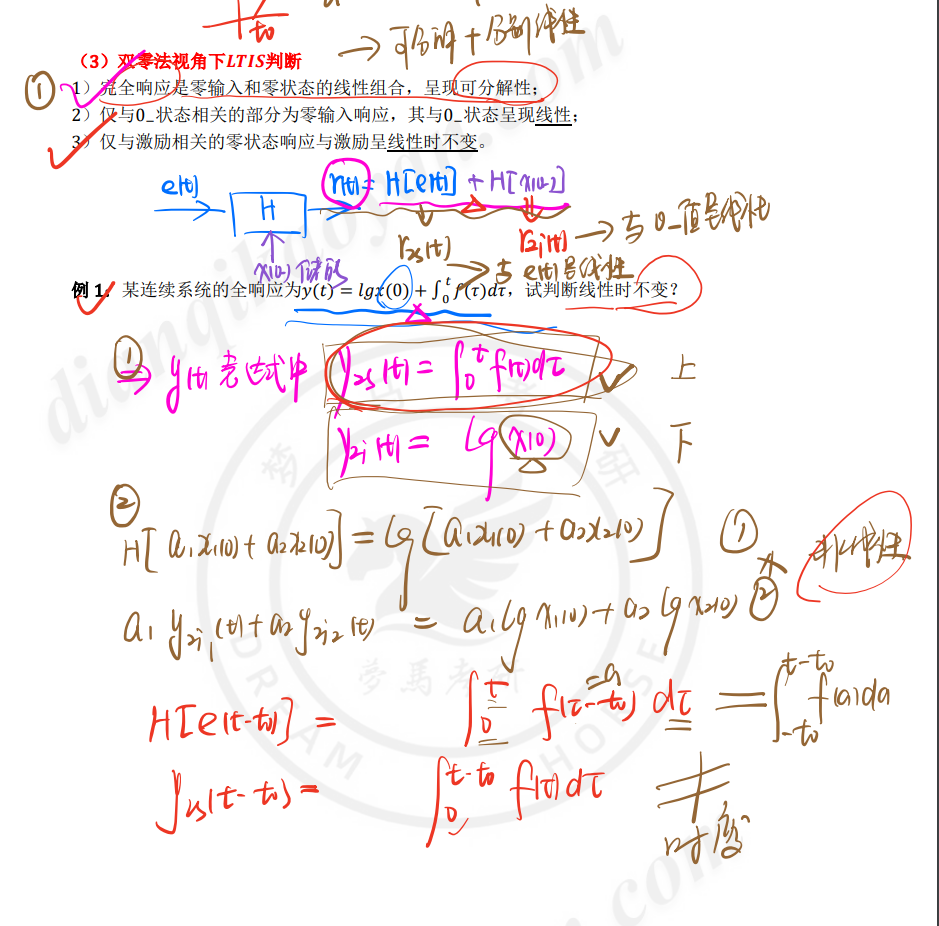 t₀
→ 可分解 + 分别线性
(3)双零法视角下LTIS判断
① 1)完全响应是零输入和零状态的线性组合,呈现可分解性;
2)仅与0_状态相关的部分为零输入响应,其与0_状态呈现线性;
3)仅与激励相关的零状态响应与激励呈线性时不变。
e(t) → H → r(t) = H[e(t)] + H[x(0-)]
r_zs(t) r_zi(t) → 与0_值呈线性
x(0-) 储能 → 与e(t)呈线性
例 1.某连续系统的全响应为y(t) = lgx(0) + ∫₀ᵗ f(τ)dτ,试判断线性时不变?
① ⇒ y(t)表达式中 y_zs(t) = ∫₀ᵗ f(τ)dτ ✓ 上
y_zi(t) = lg x(0) ✓ 下
②
H[a₁x₁(0) + a₂x₂(0)] = lg[a₁x₁(0) + a₂x₂(0)] ① 非线性
a₁y_zi₁(t) + a₂y_zi₂(t) = a₁lg x₁(0) + a₂lg x₂(0) ②
H[e(t-t₀)] = ∫₀ᵗ f(τ-t₀) dτ = ∫_{-t₀}^{t-t₀} f(a)da
=a
y_zs(t-t₀) = ∫₀^{t-t₀} f(τ)dτ ≠
时变
dianqikaoyan.com
梦马考研
夢馬考研
DREAM HOUSE